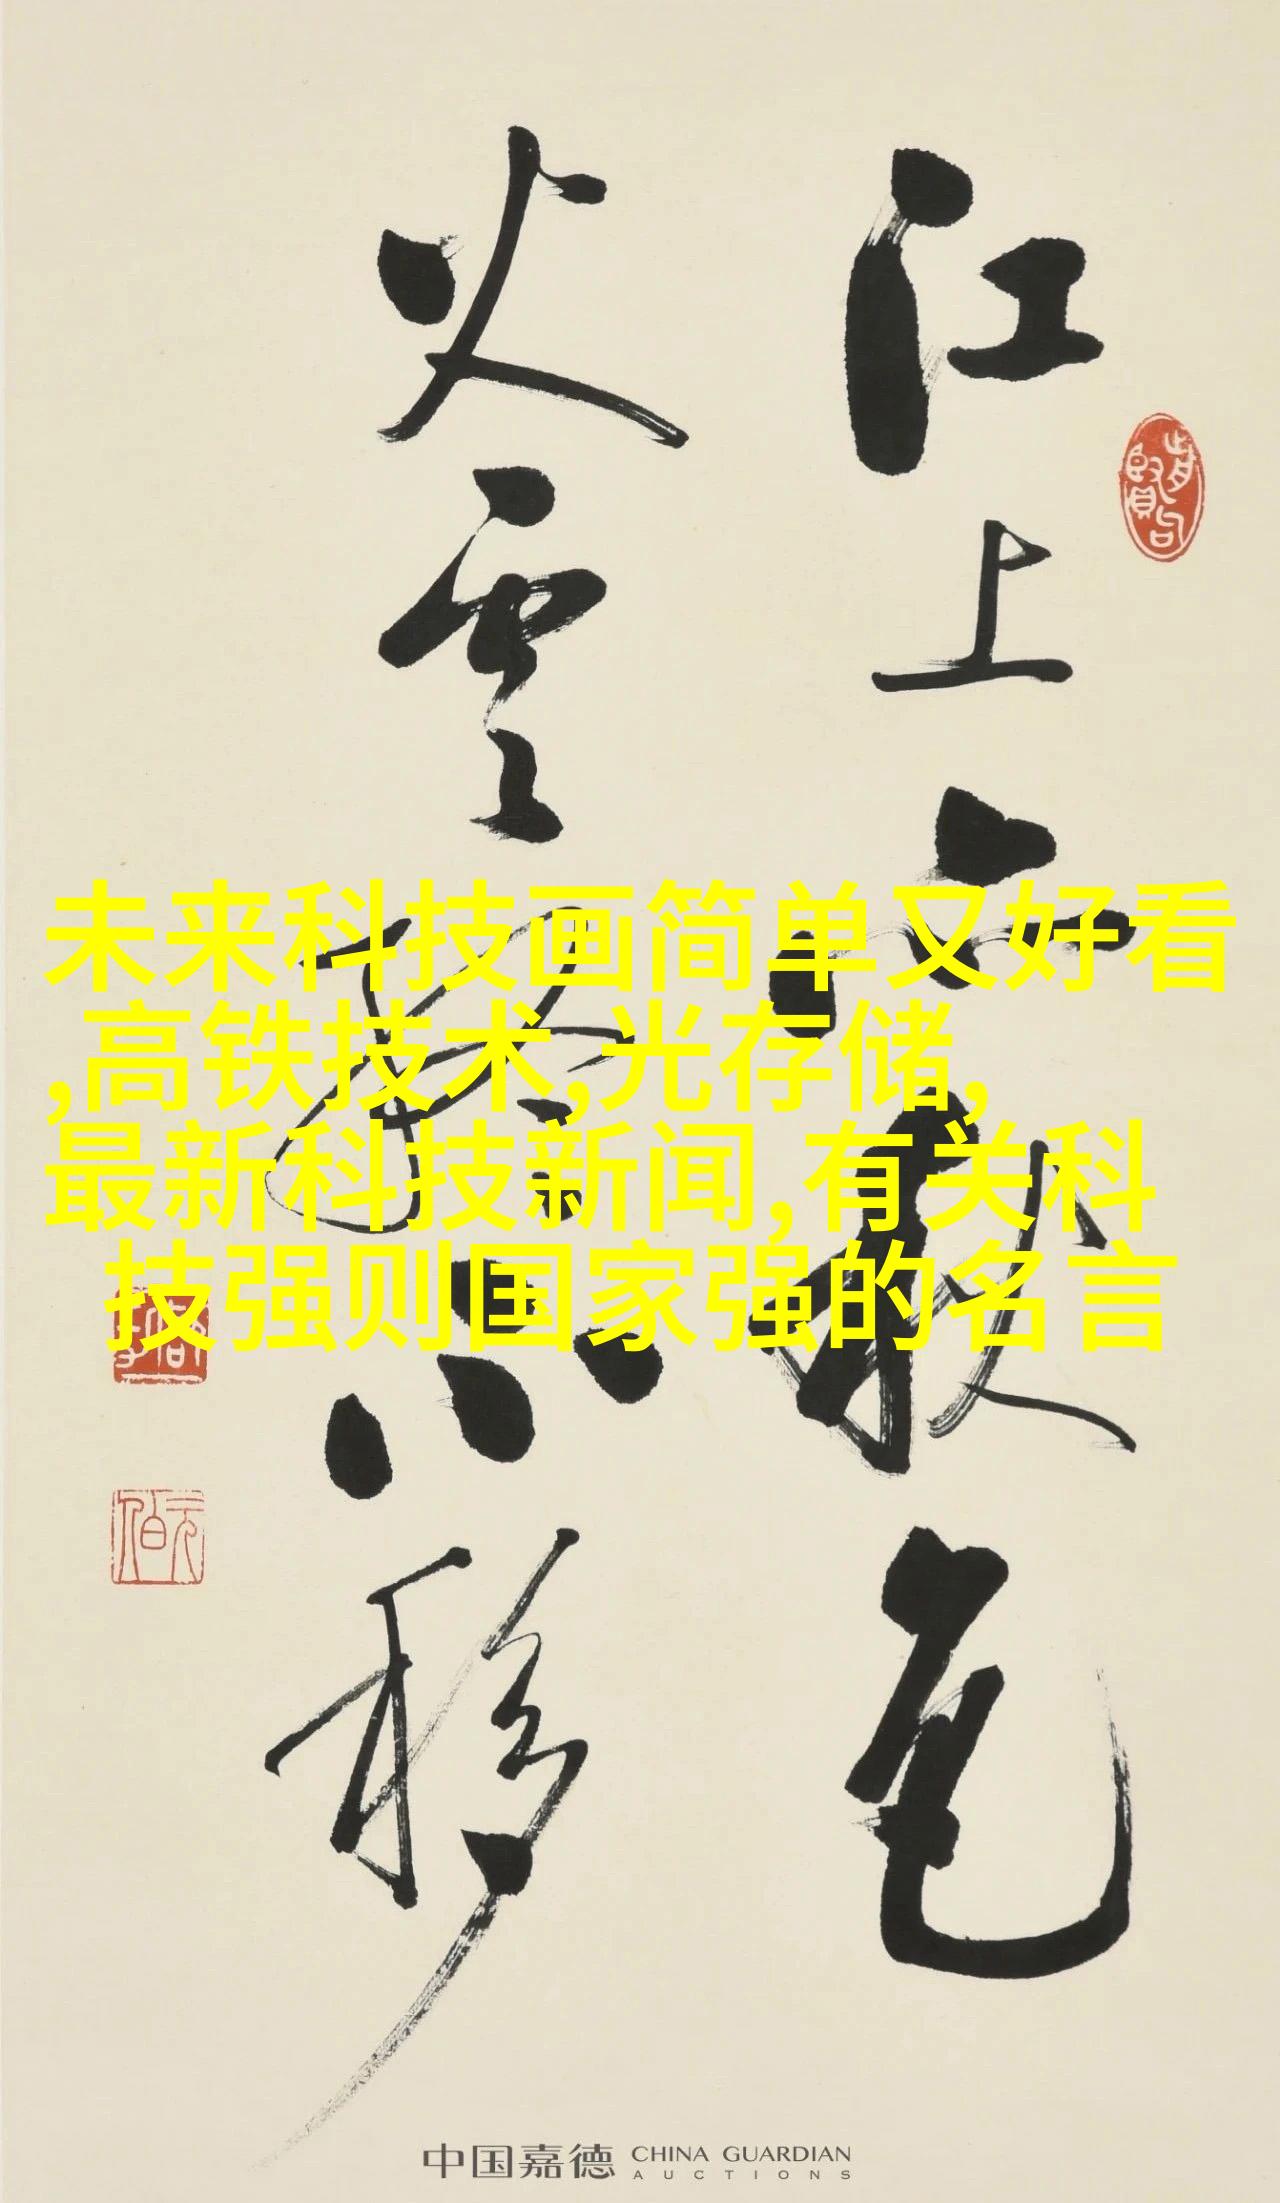 江上亦秋色
火雲終不移
未来科技画简单又好看
,高铁技术,光存储,
最新科技新闻,有关科
技强则国家强的名言
元伯
中国嘉德 CHINA GUARDIAN
AUCTIONS